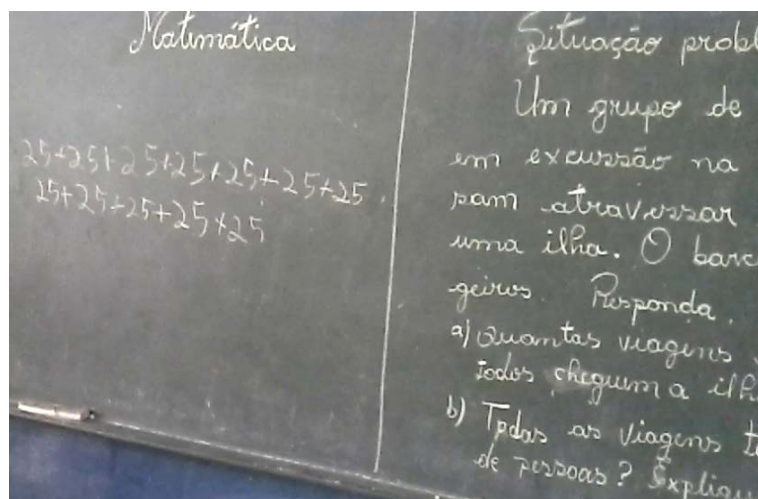 Matimática
25+25+25+25+25+25+25
25+25+25+25+25
Situação probl
Um grupo de
em excussão na
sam atravessar
uma ilha. O barc
geiros. Responda.
a) Quantas viagens
todos cheguem a ilh
b) Todas as viagens t
de pessoas? Expliqu